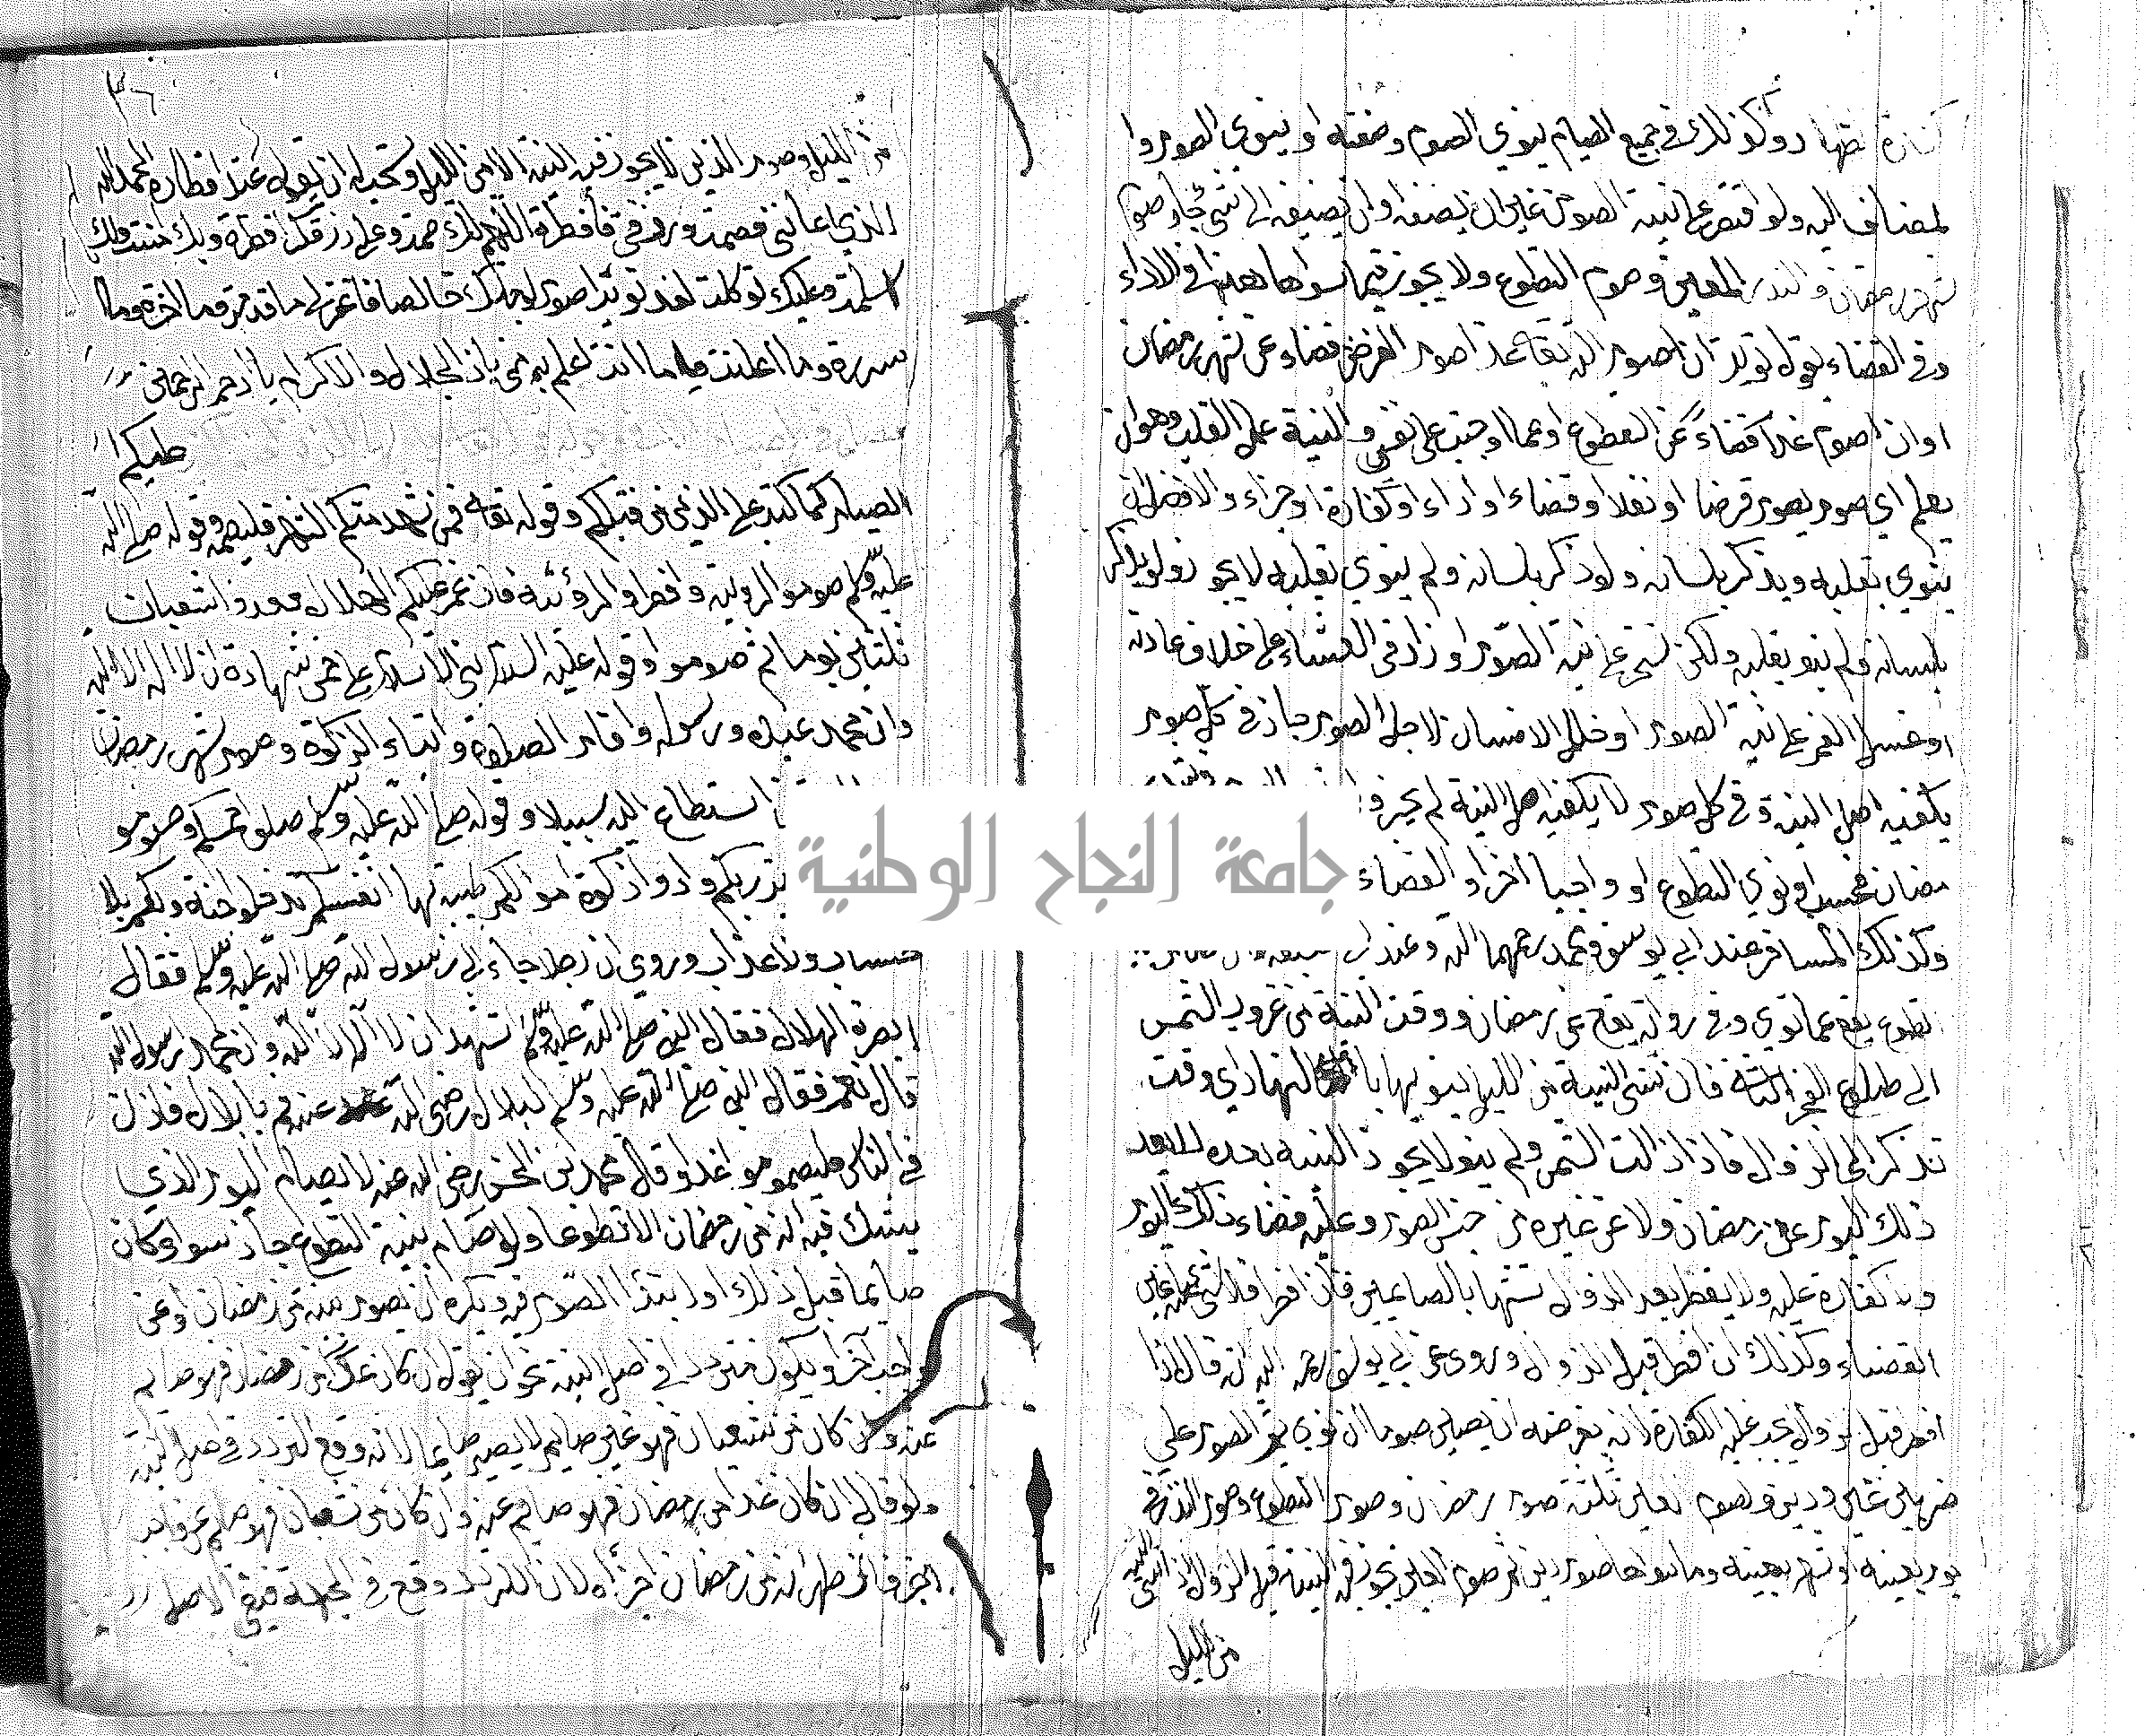 وكذلك في جميع الصيام ينوي الصوم وصفته او ينوي الصوم وا
لمضاف اليه ولو اقتصر على نية الصوم من غير ان يصفه او ان يضيفه الى شئ جاز صوم
شهر رمضان والنذر المعين وصوم التطوع ولا يجوز فيما سواها هذا في الاداء
وفي القضاء يقول نويت ان اصوم لله تعالى غدا صوم الفرض قضاء عن شهر رمضان
او ان اصوم غدا قضاءً عن التطوع او عما اوجبت على نفسي والنية عمل القلب وهو ان
يعلم اي صوم يصوم فرضا او نفلا او قضاء او اداء او كفارة او جزاء والافضل ان
ينوي بقلبه ويذكر بلسانه ولو ذكر بلسانه ولم ينوي بقلبه لا يجوز ولو لم يذكر
بلسانه ولم ينو بقلبه ولكن تسحر على نية الصوم او زاد في العشاء على خلاف عادته
او غسل الفم على نية الصوم او خلل الاسنان لاجل الصوم جاز في كل صوم
يكفيه اصل النية وفي كل صوم لا يكفيه اصل النية لم يجز و
مضان فحسب او نوي التطوع او واجبا اخر او القضاء
وكذلك المسافر عند ابي يوسف ومحمد رحمهما الله وعند ابي
تطوع يقع عما نوى وفي رواية يقع عن رمضان ووقت النية من غروب الشمس
الى طلوع الفجر فان نسي النية من الليل ينويها بالنهار اي وقت
تذكر الى الزوال فاذا زالت الشمس ولم ينو لا يجوز النية بعده
ذلك اليوم عن رمضان ولا عن غيره من جنس الصوم وعليه قضاء ذلك اليوم
ولا كفارة عليه ولا يفطر بعد الزوال تشبها بالصايمين فان افطر فلا شئ عليه غير
القضاء وكذلك ان افطر قبل الزوال وروى عن ابي يوسف رحمه الله انه قال اذا
افطر قبل الزوال يجب عليه الكفارة لانه
ضربين عين ودين فصوم العين ثلثة صوم رمضان وصوم التطوع وصوم النذر في
يوم بعينه او شهر بعينه وما سواها صوم دين ثم صوم العين يجوز فيه النية قبل الزوال اذا نسى
من الليل
٣٦
من الليل وصوم الدين لا يجوز فيه النية الا من الليل ويستحب له ان يقول عند افطاره الحمد لله
الذي اعانني فصمت ورزقني فأفطرت اللهم لك صمت وعلى رزقك افطرت وبك امنت ولك
اسلمت وعليك توكلت لغد نويت اصوم لوجهك خالصا فاغفر لي ما قدمت وما اخرت وما
سررت وما اعلنت وما انت اعلم به مني يا ذا الجلال والاكرام يا ارحم الرحمين
عليكم
الصيام كما كتب على الذين من قبلكم وقوله تعالى فمن شهد منكم الشهر فليصمه وقوله صلى الله
عليه وسلم صوموا لرويته وافطروا لرؤيته فان غم عليكم الهلال فعدوا شعبان
ثلثين يوما ثم صوموا وقوله عليه السلام بني الاسلام على خمس شهادة ان لا اله الا الله
وان محمدا عبده ورسوله واقام الصلوة وايتاء الزكوة وصوم شهر رمضان
استطاع اليه سبيلا وقوله صلى الله عليه وسلم صلوا خمسكم وصوموا
وادوا زكوة اموالكم طيبة بها انفسكم تدخلوا جنة ربكم بلا
حساب ولا عذاب وروي ان رجلا جاء الى رسول الله صلى الله عليه وسلم فقال
ابصرت الهلال فقال النبي صلى الله عليه وسلم اتشهد ان لا اله الا الله وان محمدا رسول الله
قال نعم فقال النبي صلى الله عليه وسلم لبلال رضي الله عنه قم يا بلال فاذن
في الناس فليصوموا غدا وقال محمد بن الحسن رضي الله عنه لا يصام اليوم الذي
يشك فيه انه من رمضان الا تطوعا ولو صام بنية التطوع جاز سواء كان
صايما قبل ذلك او ابتدا الصوم فيه ويكره ان يصوم بنية من رمضان او عن
واجب آخر او يكون مترددا في اصل النية نحو ان يقول ان كان غدا من رمضان فهو صايم
عنه وان كان من شعبان فهو غير صايم لا يصير صايما لانه وقع التردد في اصل النية
ولو قال ان كان غدا من رمضان فهو صايم عنه وان كان من شعبان فهو صايم عن واجب
اخر فان ظهر انه من رمضان اجزأه لان التردد وقع في الجهة فبقي الاصل
جامعة النجاح الوطنية